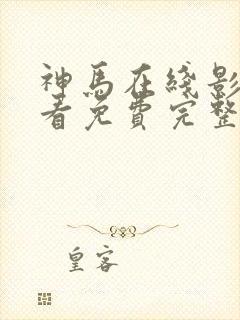 神馬在綫影
看免費完整
皇客